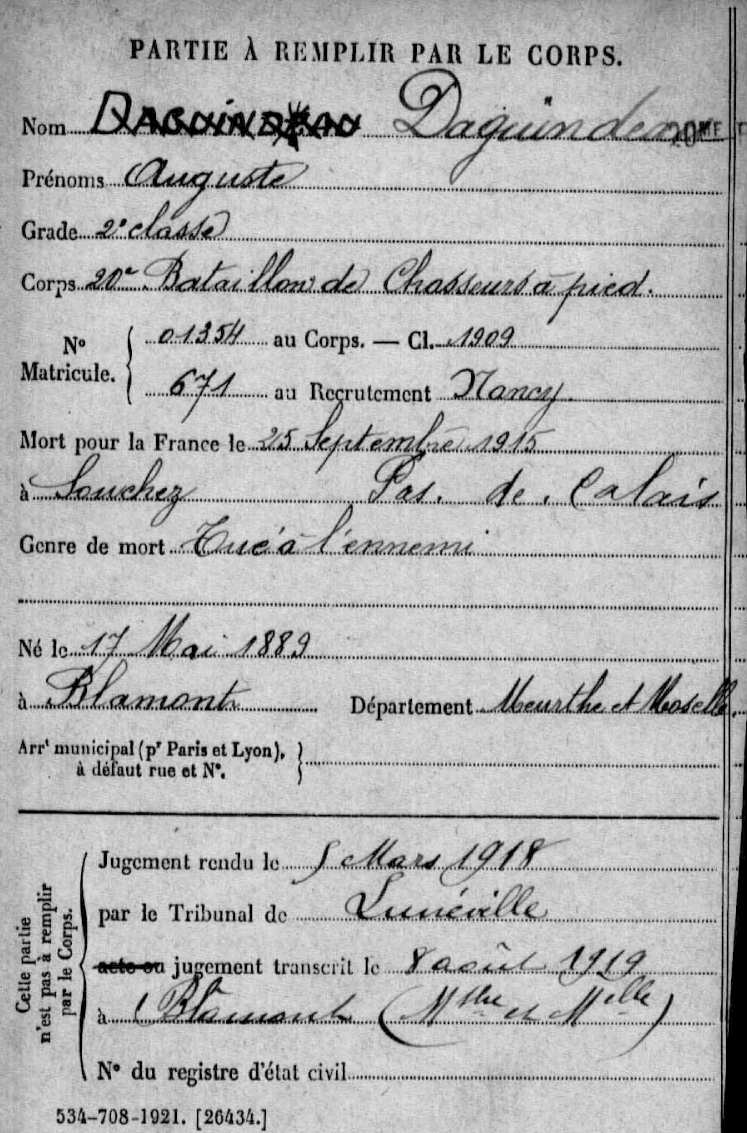 PARTIE À REMPLIR PAR LE CORPS.
Nom DAGUINDEAU Daguindeau 20ME
Prénoms Auguste
Grade 2e classe
Corps 20e Bataillon de Chasseurs à pied.
No Matricule. 01354 au Corps. — Cl. 1909
671 au Recrutement Nancy.
Mort pour la France le 25 Septembre 1915
à Souchez Pas. de. Calais
Genre de mort Tué à l'ennemi
Né le 17 Mai 1889
à Blamont Département Meurthe et Moselle.
Arrt municipal (pr Paris et Lyon),
à défaut rue et No.
Cette partie n'est pas à remplir par le Corps.
Jugement rendu le 5 Mars 1918
par le Tribunal de Lunéville
acte ou jugement transcrit le 8 août 1919
à Blâmont (Mthe et Melle)
No du registre d'état civil
534-708-1921. [26434.]